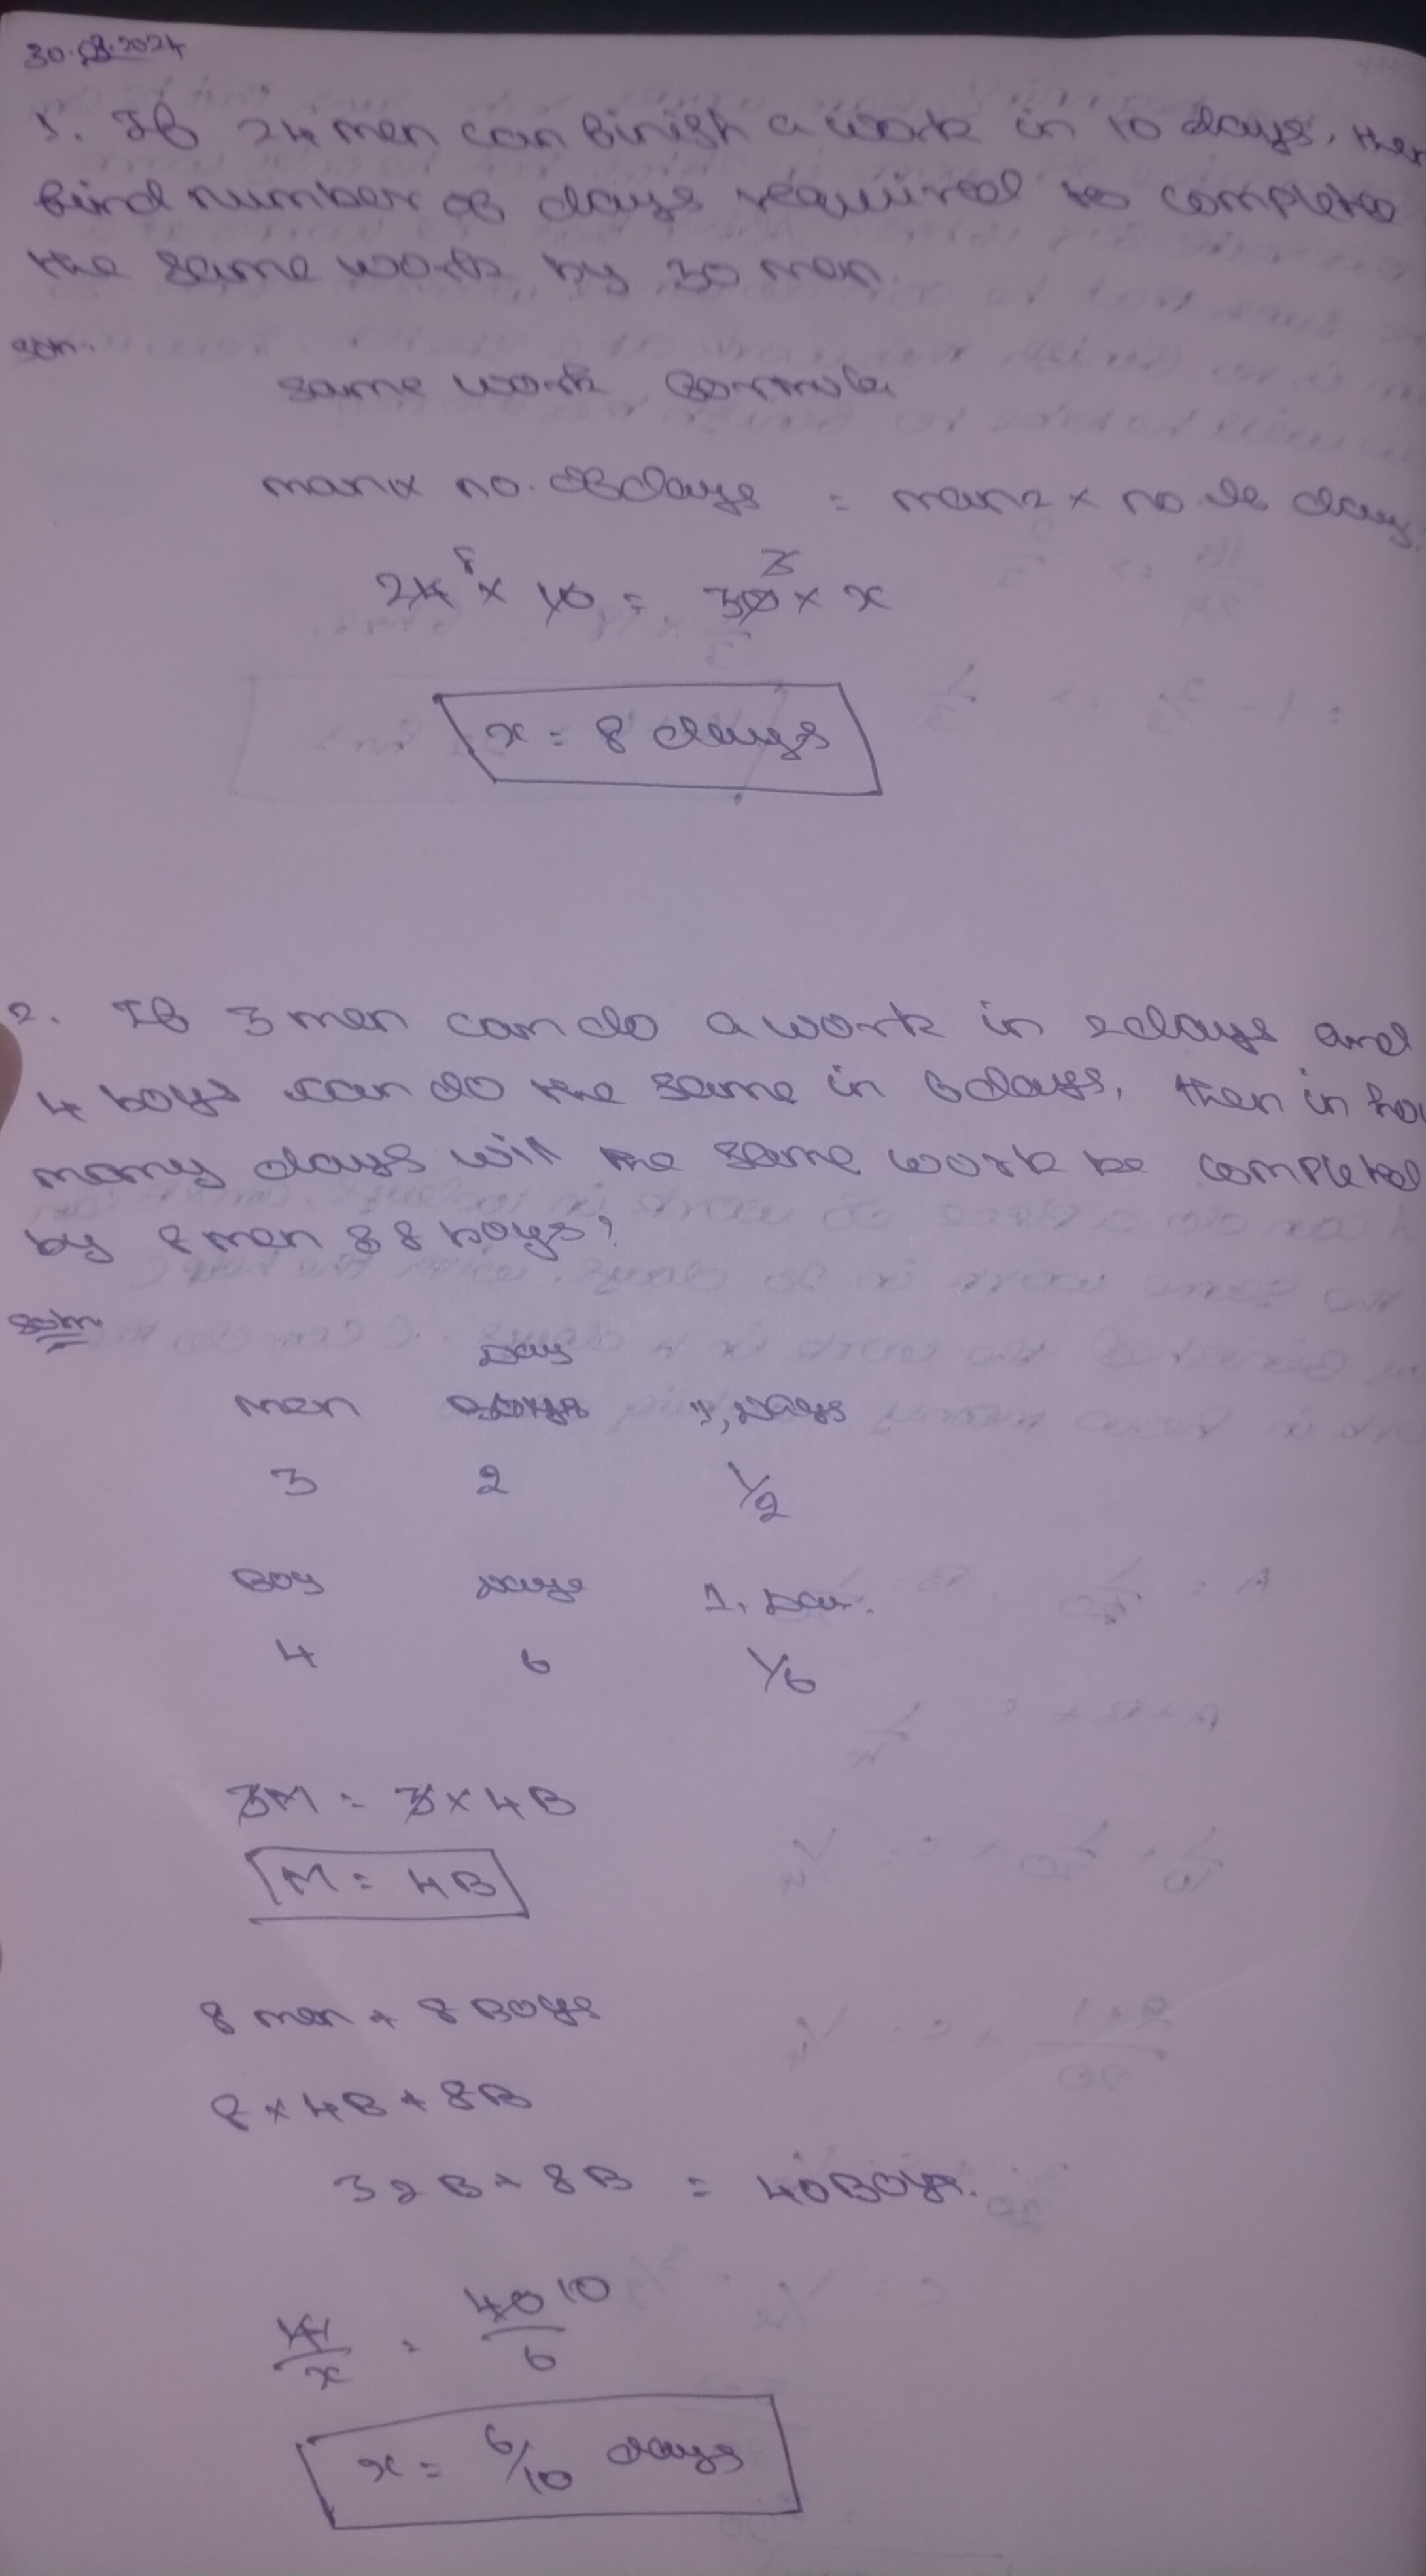 30.08.2024
1. If 24 men can finish a work in 10 days, then
find number of days required to complete
the same work by 30 men.
soln.
same work formula
man1 x no. of days = man2 x no of days
24 8 x 10 = 30 3 x x
x = 8 days
2. If 3 men can do a work in 2 days and
4 boys can do the same in 6 days, then in how
many days will the same work be completed
by 8 men & 8 boys?
soln
Day
men 1, Days
3 2 1/2
Boy Days 1, Day.
4 6 1/6
3M = 3 x 4B
M = 4B
8 men + 8 Boys
8 x 4B + 8B
32B + 8B = 40 Boys.
4/x = 40 10/6
x = 6/10 days